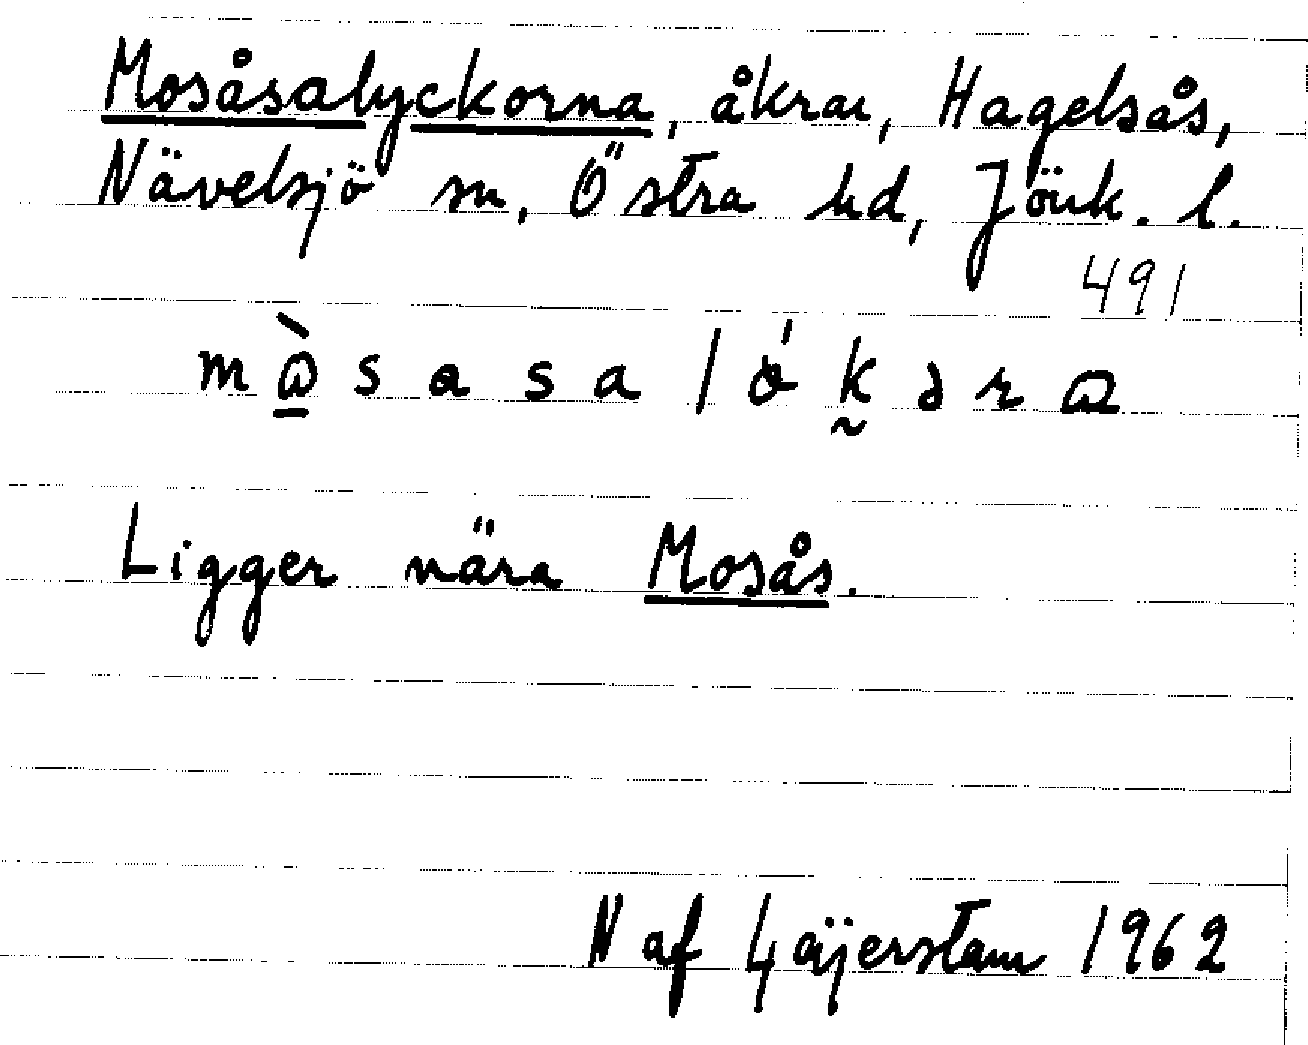 Mosåsalyckorna, åkrar, Hagelsås,
Nävelsjö sn, Östra hd, Jönk. l.
491
Ligger nära Mosås.
N af Gäijerstam 1962